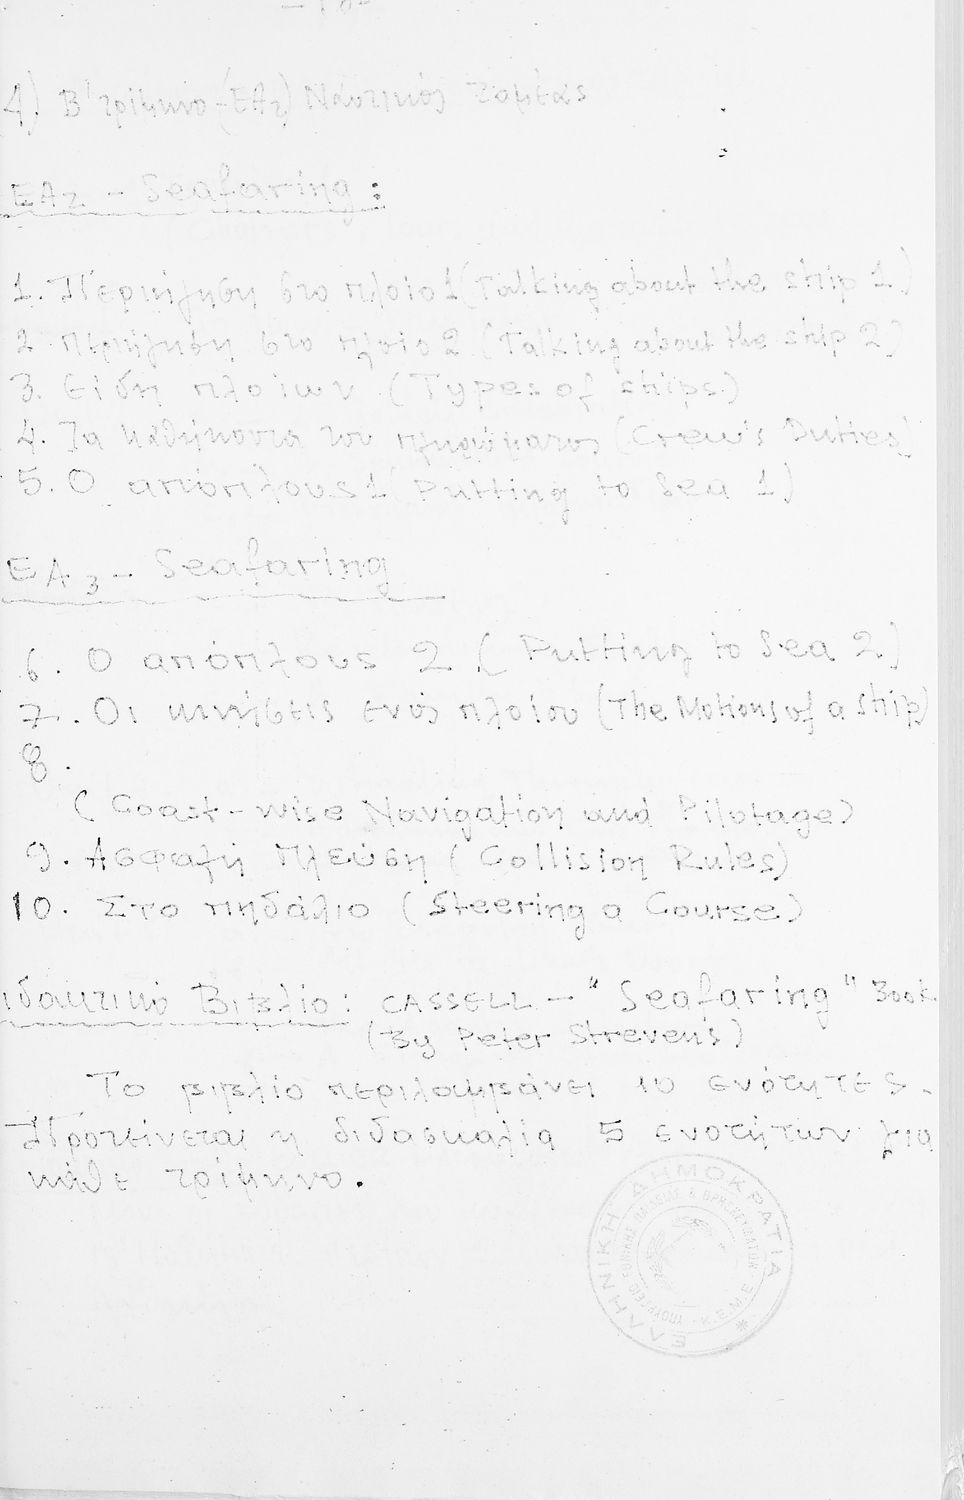 4) Β' τρίμηνο - (ΕΑ2) Ναυτικός Τομέας
ΕΑ2 - Seafaring :
1. Περιήγηση στο πλοίο 1 (Talking about the ship 1)
2 Περιήγηση στο πλοίο 2 (Talking about the ship 2)
3. Είδη πλοίων (Types of ships)
4. Τα καθήκοντα του πληρώματος (Crew's Duties)
5. Ο απόπλους 1 (Putting to Sea 1)
ΕΑ3 - Seafaring
6. Ο απόπλους 2 (Putting to Sea 2)
7. Οι κινήσεις ενός πλοίου (The Motions of a Ship)
8.
(Coast-wise Navigation and Pilotage)
9. Ασφαλή πλεύση (Collision Rules)
10. Στο πηδάλιο (Steering a Course)
ιδακτικό Βιβλίο: CASSELL - "Seafaring" Book.
(By Peter Strevens)
Το βιβλίο περιλαμβάνει 10 ενότητες.
Προτείνεται η διδασκαλία 5 ενοτήτων για
κάθε τρίμηνο.
ΕΛΛΗΝΙΚΗ ΔΗΜΟΚΡΑΤΙΑ
ΥΠΟΥΡΓΕΙΟ ΕΘΝΙΚΗΣ ΠΑΙΔΕΙΑΣ & ΘΡΗΣΚΕΥΜΑΤΩΝ
Κ.Ε.Μ.Ε.